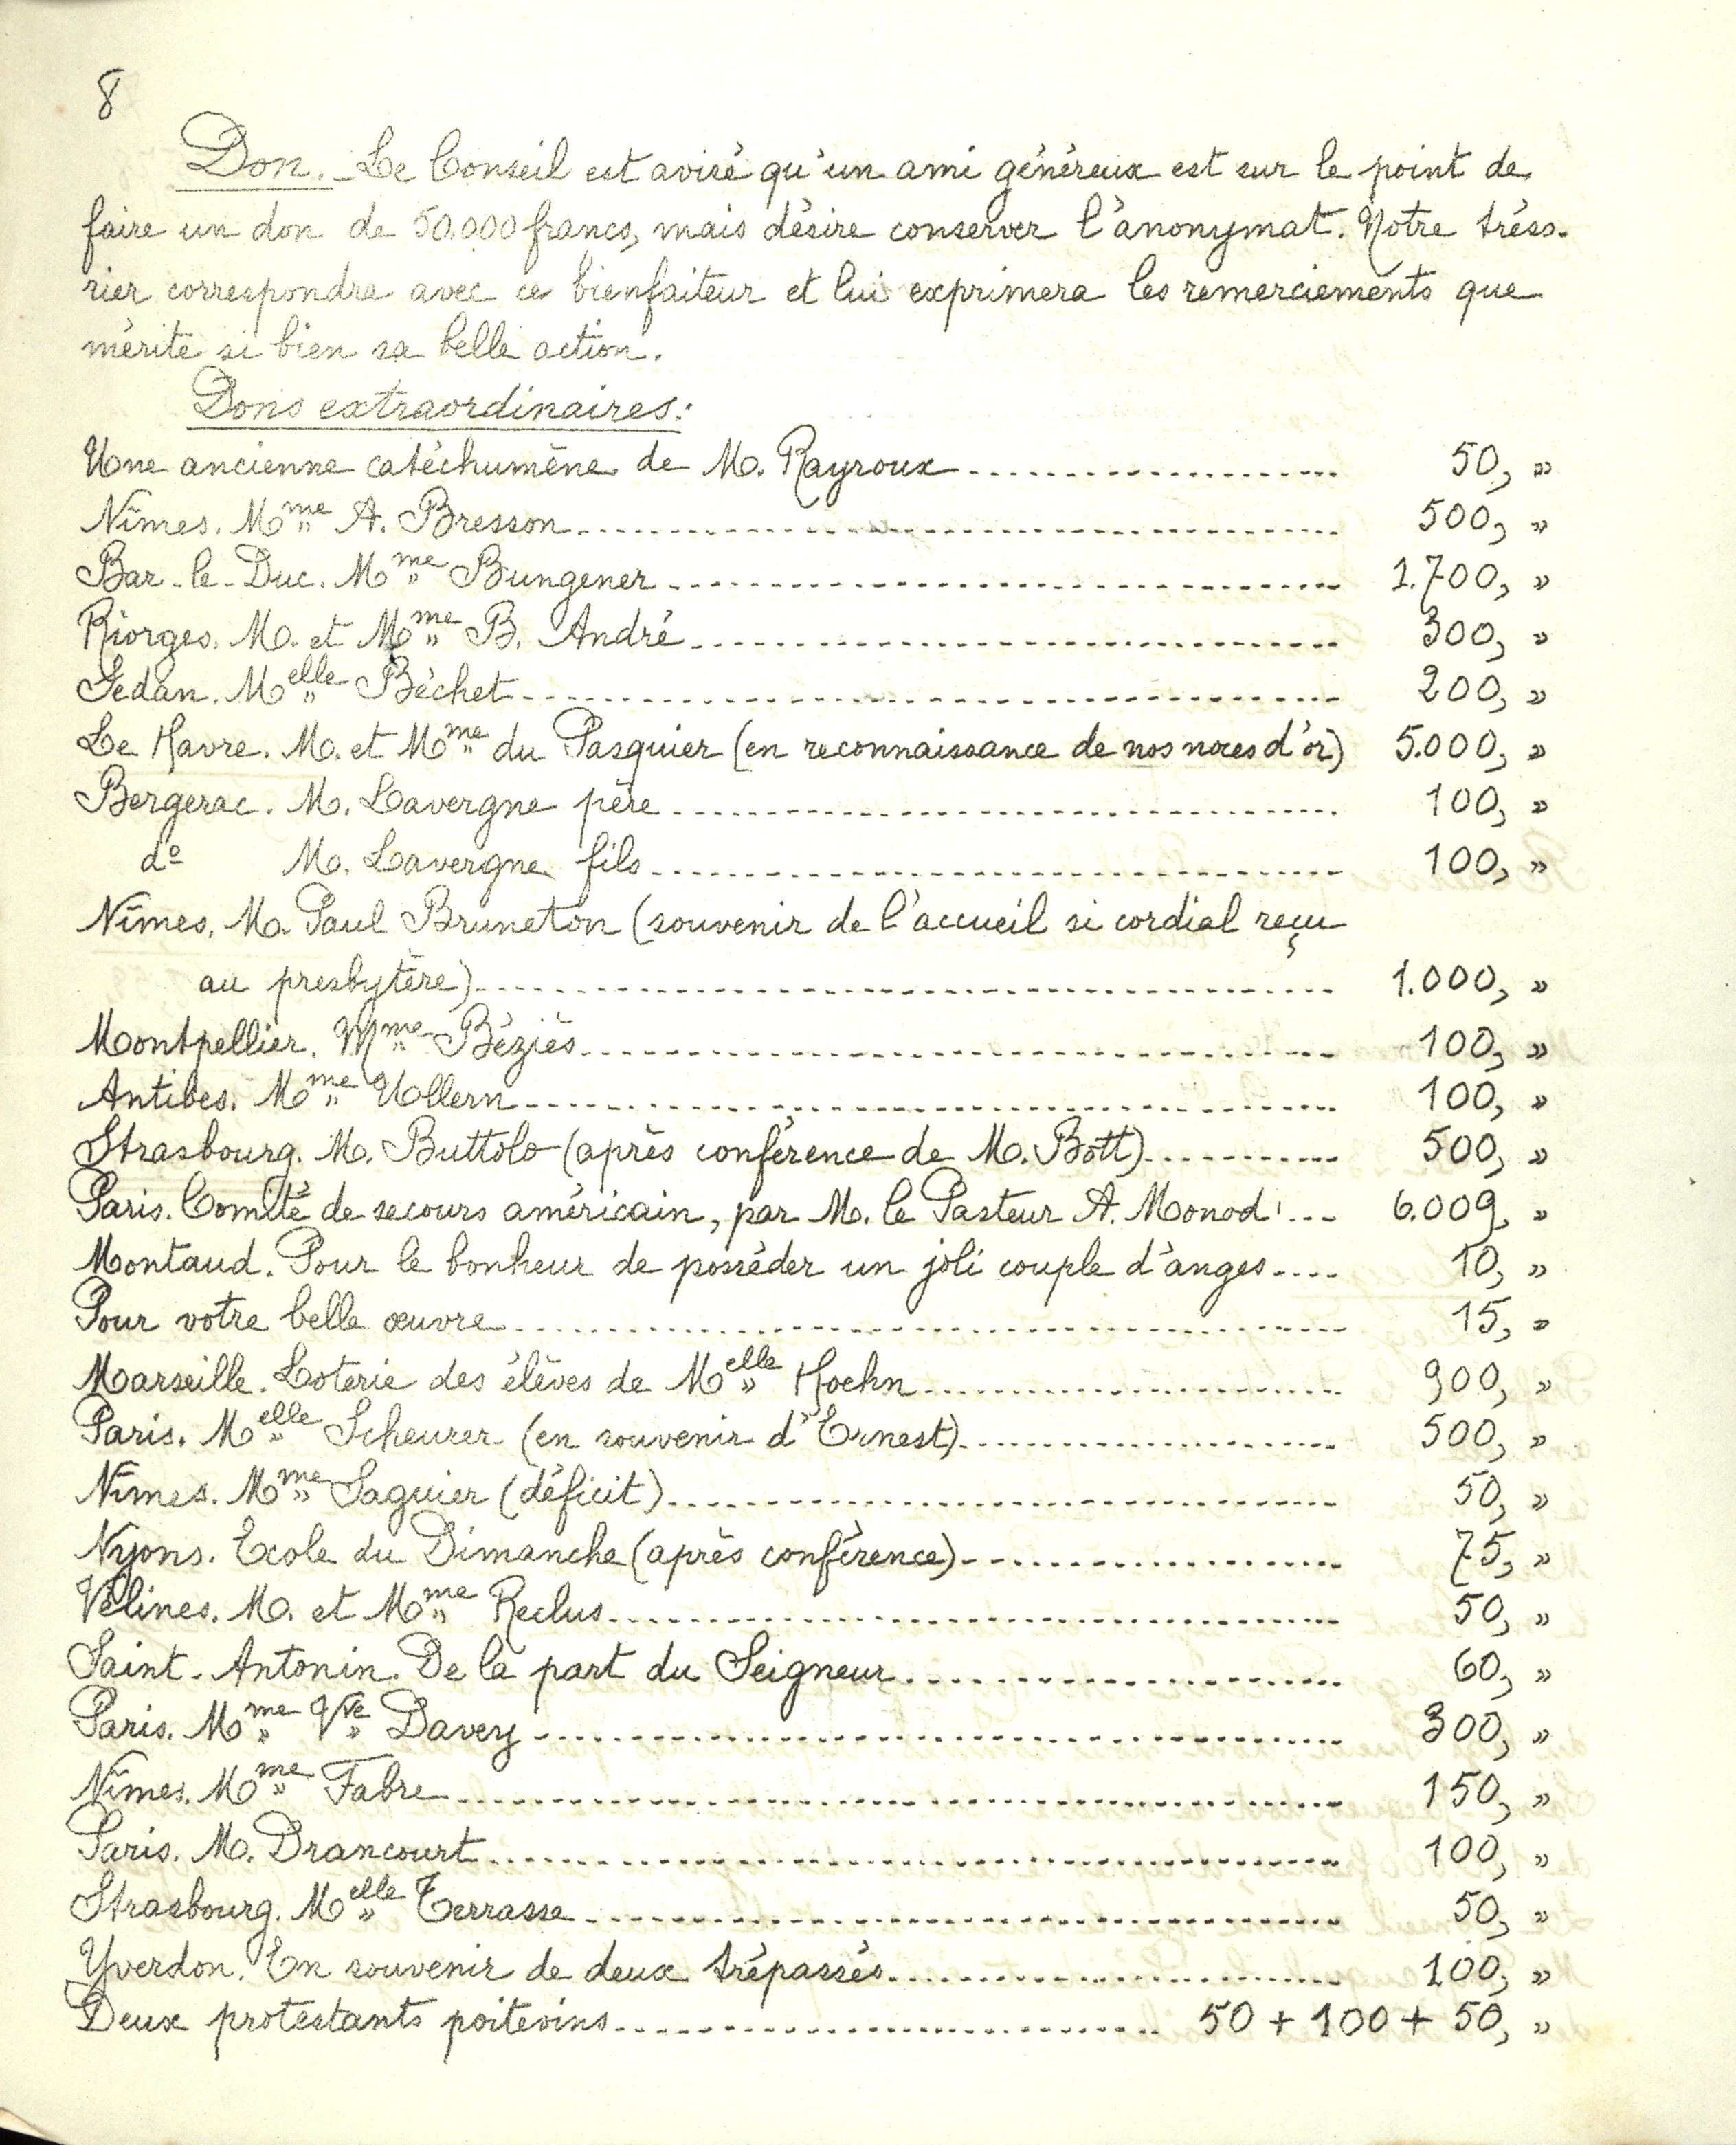 8
Don. - Le Conseil est avisé qu'un ami généreux est sur le point de
faire un don de 50.000 francs, mais désire conserver l'anonymat. Notre tréso-
rier correspondra avec ce bienfaiteur et lui exprimera les remerciements que
mérite si bien sa belle action.
Dons extraordinaires:
Une ancienne catéchumène de M. Rayroux .................... 50, »
Nîmes. Mme A. Bresson .................... 500, »
Bar-le-Duc. Mme Bungener .................... 1.700, »
Riorges. M. et Mme B. André .................... 300, »
Sedan. Melle Béchet .................... 200, »
Le Havre. M. et Mme du Pasquier (en reconnaissance de nos noces d'or) 5.000, »
Bergerac. M. Lavergne père .................... 100, »
do M. Lavergne fils .................... 100, »
Nîmes. M. Paul Bruneton (souvenir de l'accueil si cordial reçu
au presbytère) .................... 1.000, »
Montpellier. Mme Béziès .................... 100, »
Antibes. Mme Ullern .................... 100, »
Strasbourg. M. Buttolo (après conférence de M. Bott) ........... 500, »
Paris. Comité de secours américain, par M. le Pasteur A. Monod .... 6.009, »
Montaud. Pour le bonheur de posséder un joli couple d'anges .... 10, »
Pour votre belle œuvre .................... 15, »
Marseille. Loterie des élèves de Melle Hoehn .................... 900, »
Paris. Melle Scheurer (en souvenir d'Ernest) .................... 500, »
Nîmes. Mme Saguier (déficit) .................... 50, »
Nyons. Ecole du Dimanche (après conférence) .................... 75, »
Vélines. M. et Mme Reclus .................... 50, »
Saint-Antonin. De la part du Seigneur .................... 60, »
Paris. Mme Vve Davery .................... 300, »
Nîmes. Mme Fabre .................... 150, »
Paris. M. Drancourt .................... 100, »
Strasbourg. Melle Terrasse .................... 50, »
Yverdon. En souvenir de deux trépassés .................... 100, »
Deux protestants poitevins .................... 50 + 100 + 50, »